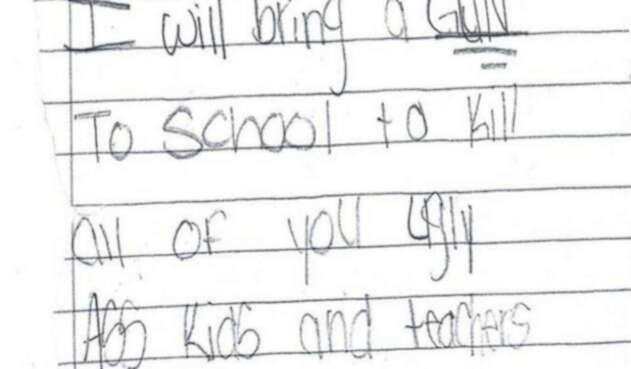 I will bring a GUN
To School to Kill
all of you ugly
Ass Kids and teachers